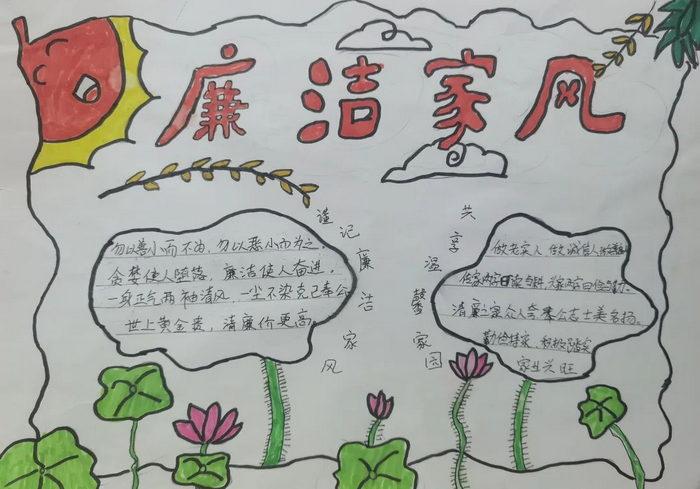 廉洁家风
勿以善小而不为，勿以恶小而为之。
贪婪使人堕落，廉洁使人奋进。
一身正气两袖清风，一尘不染克己奉公
世上黄金贵，清廉价更高
谨记廉洁家风
共享温馨家园
做老实人 做诚信人
清廉之家众人夸奉公志士美名扬
勤俭持家
家业兴旺